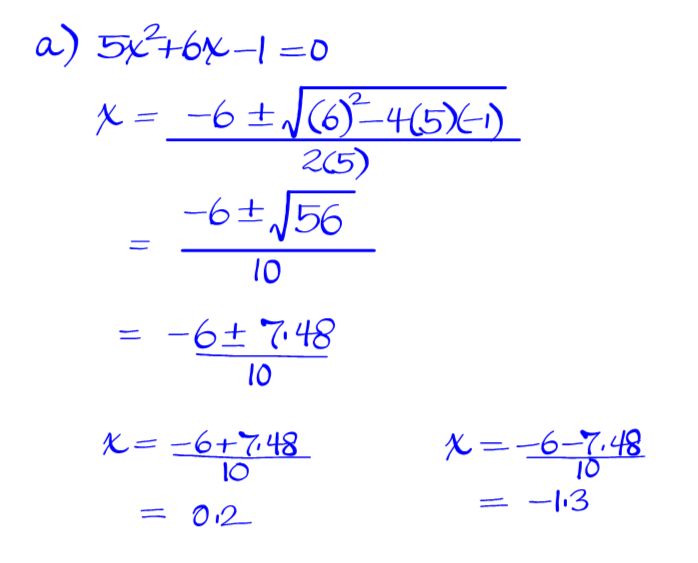 a) 5x²+6x-1=0
x = -6 ± √(6)²-4(5)(-1)
2(5)
= -6 ± √56
10
= -6 ± 7.48
10
x = -6+7.48 x = -6-7.48
10 10
= 0.2 = -1.3